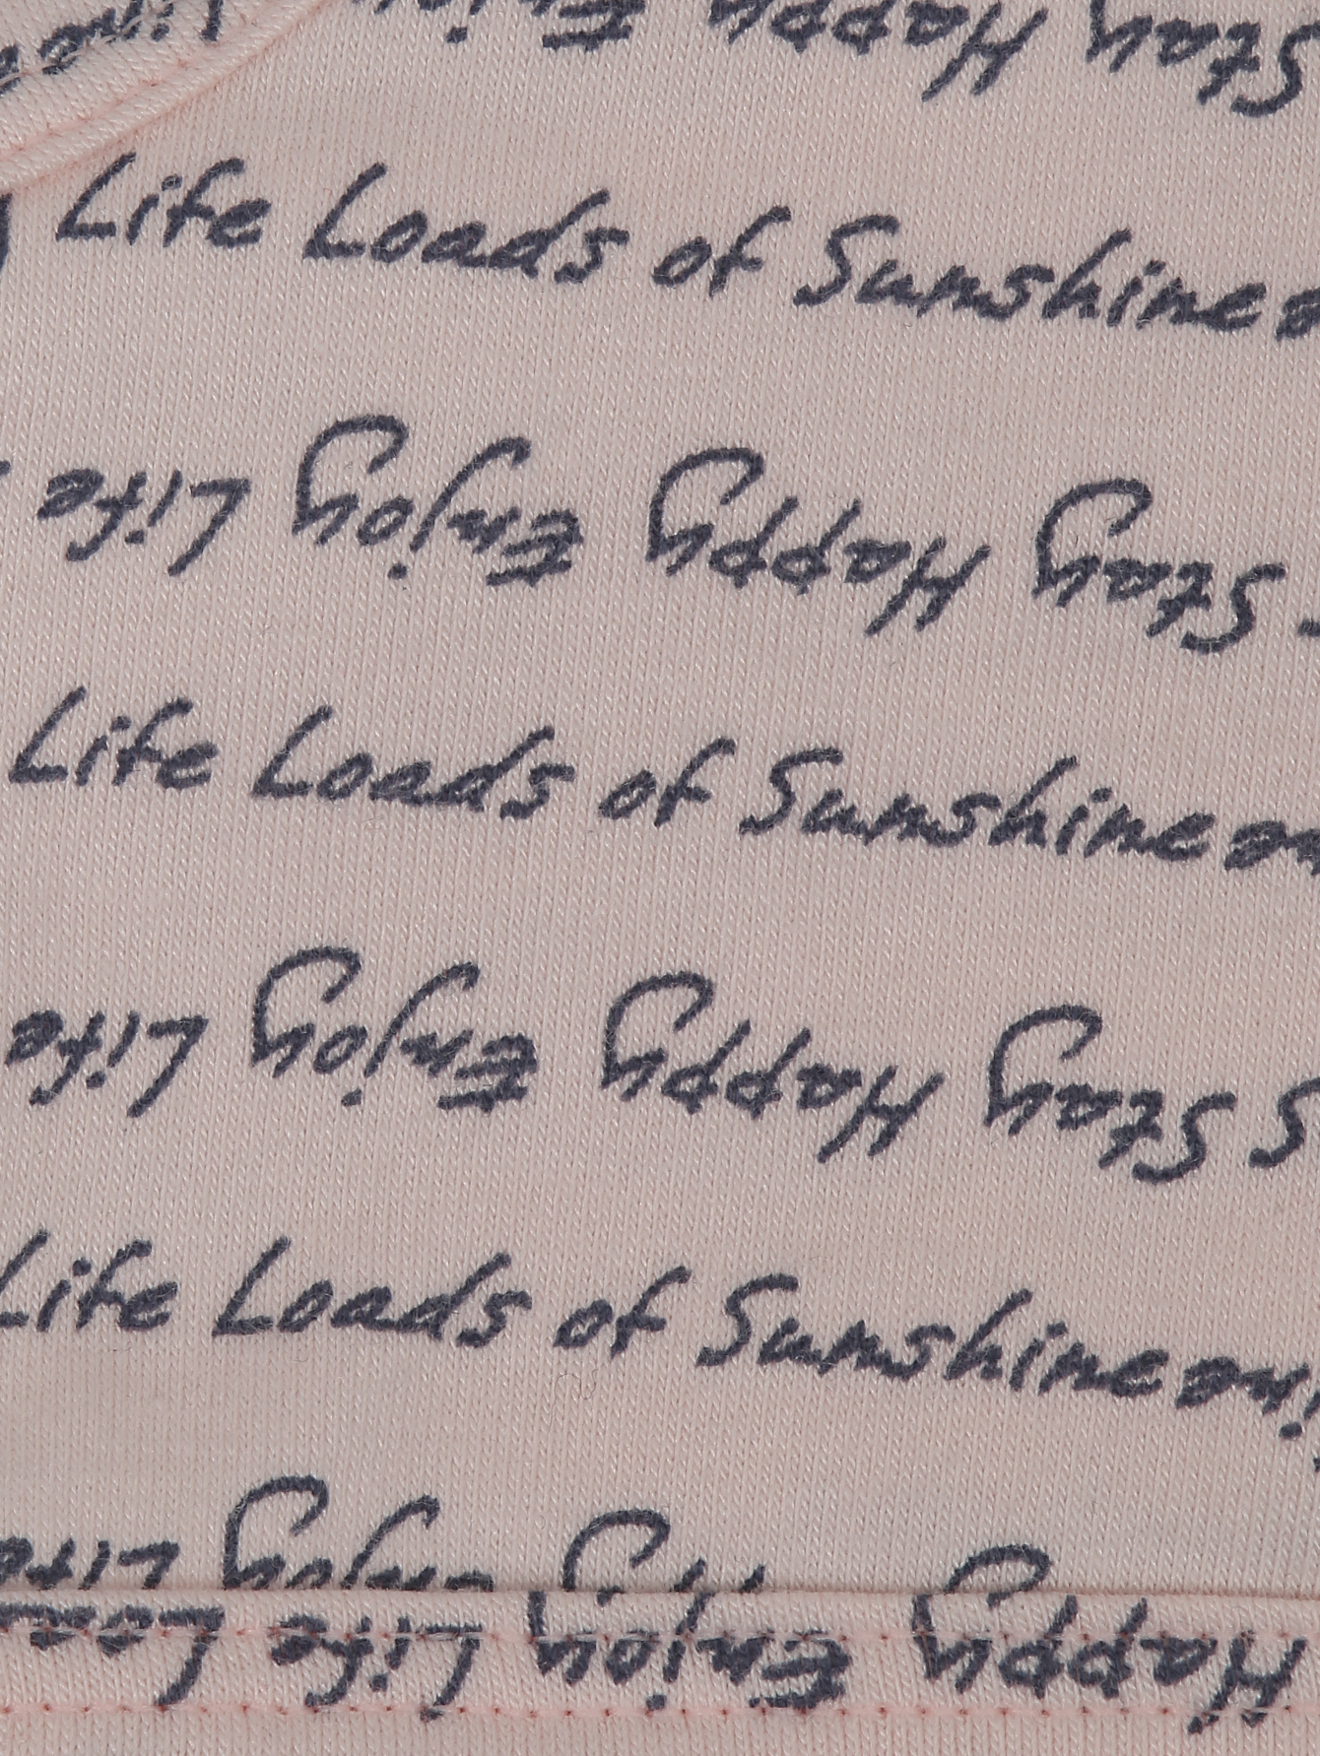 Stay Happy
Life Loads of Sunshine
Stay Happy Enjoy Life
Life Loads of Sunshine
Stay Happy Enjoy Life
Life Loads of Sunshine
Happy Enjoy Life